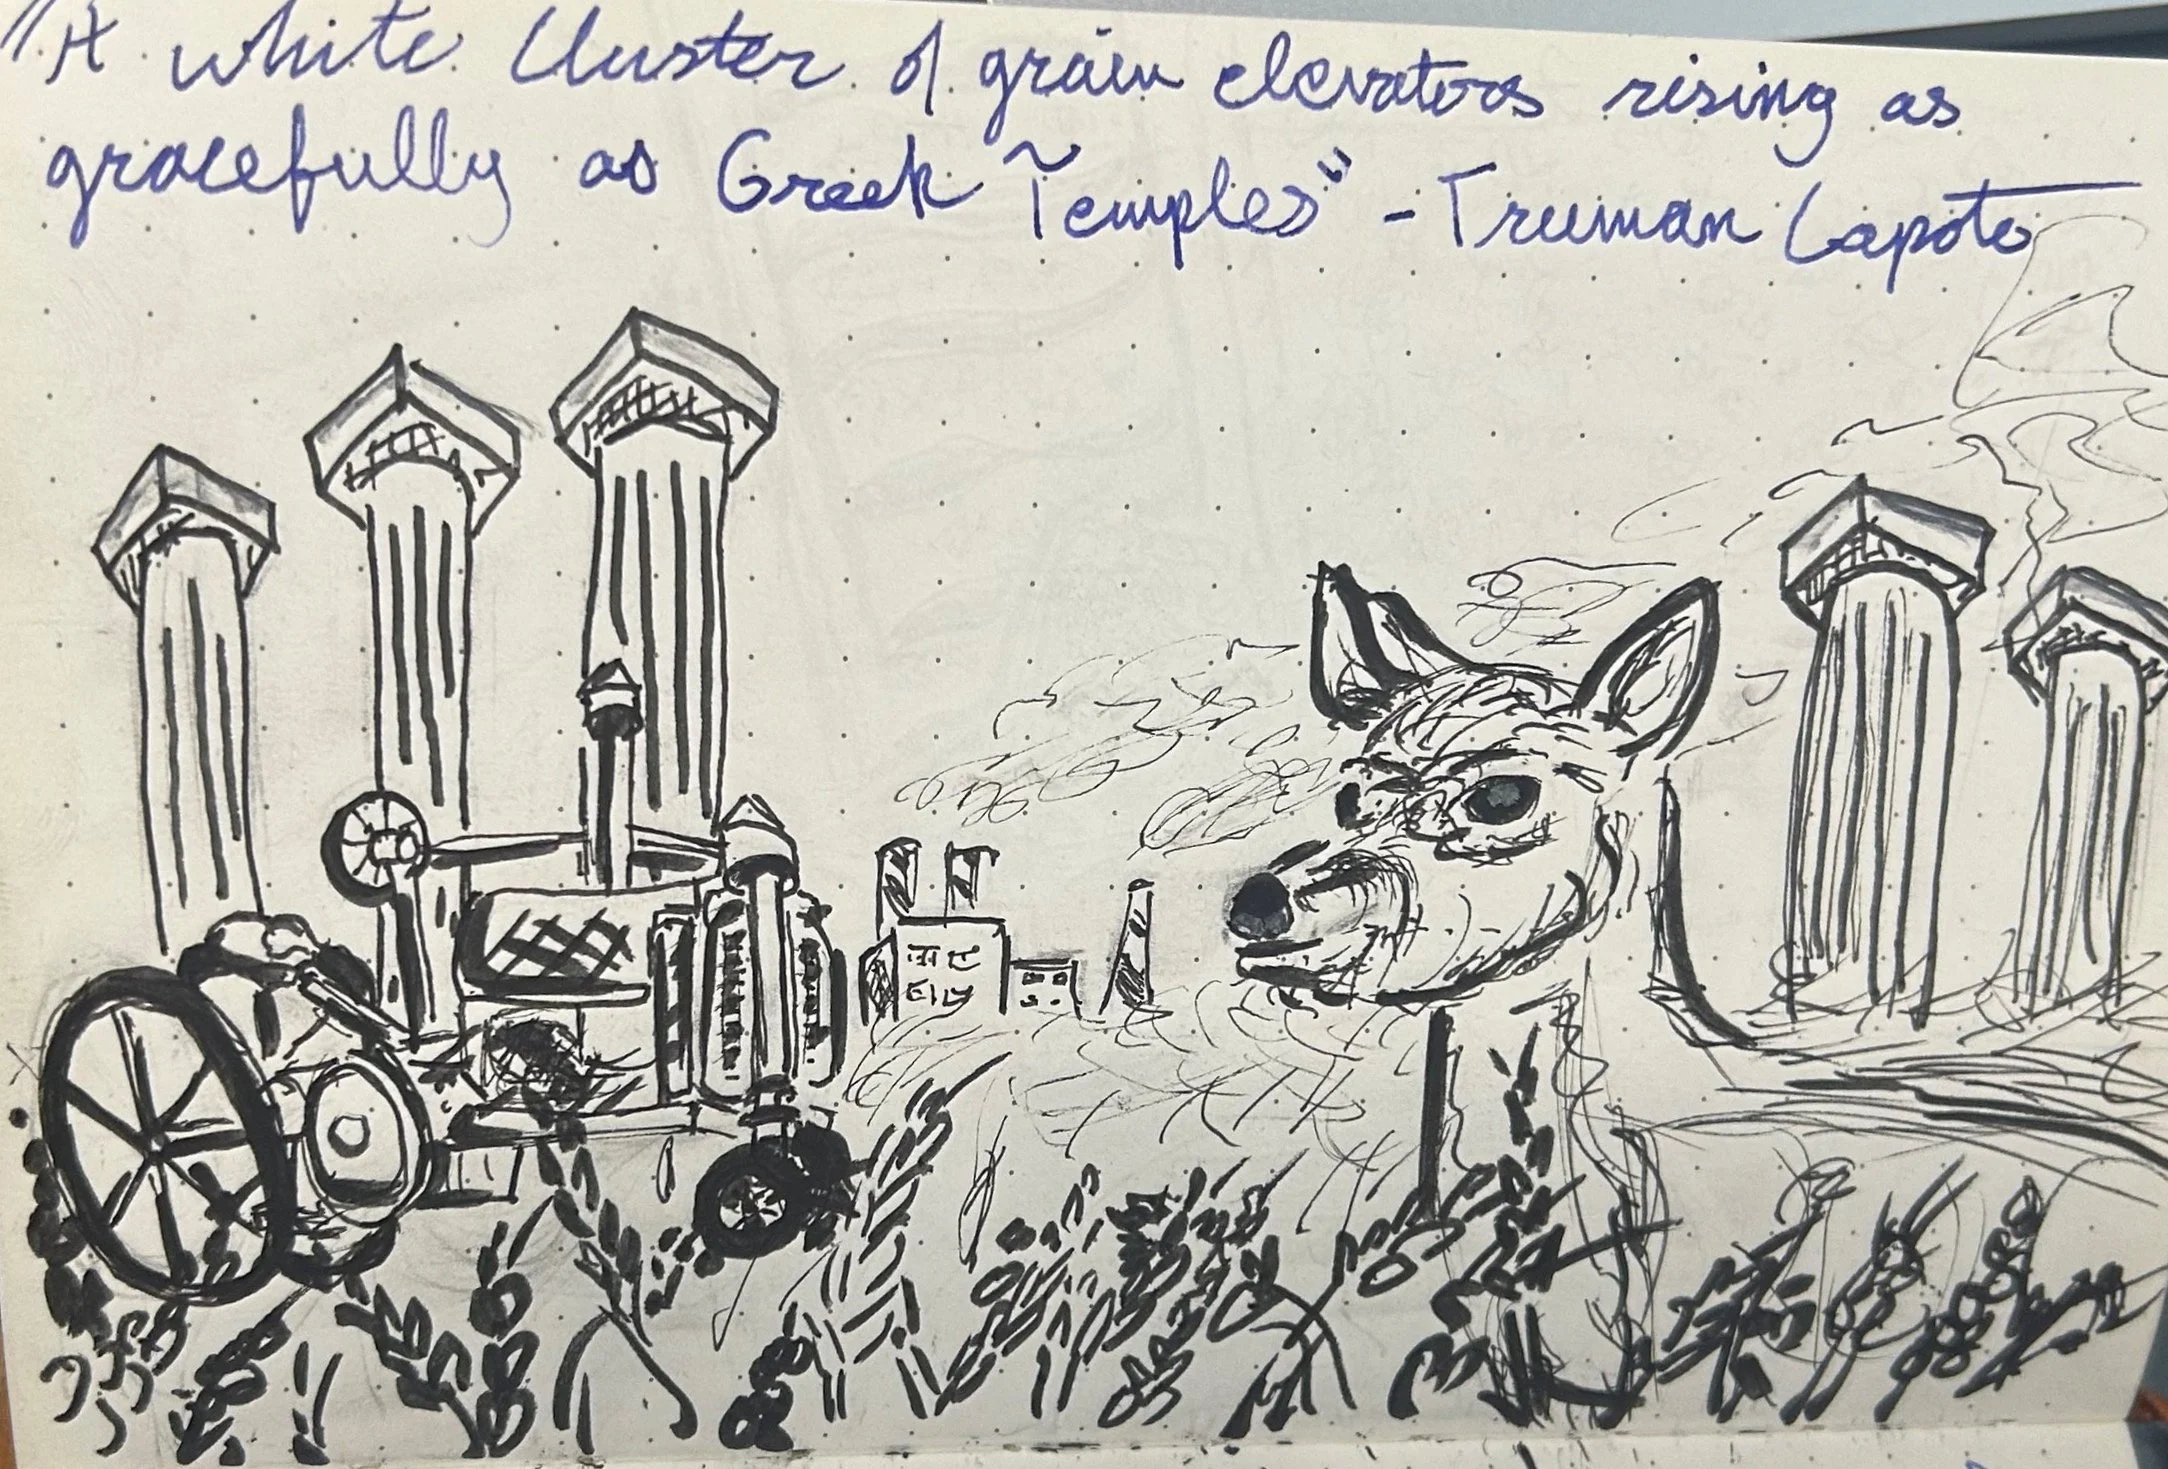 "A white Cluster of grain elevators rising as
gracefully as Greek Temples" - Truman Capote